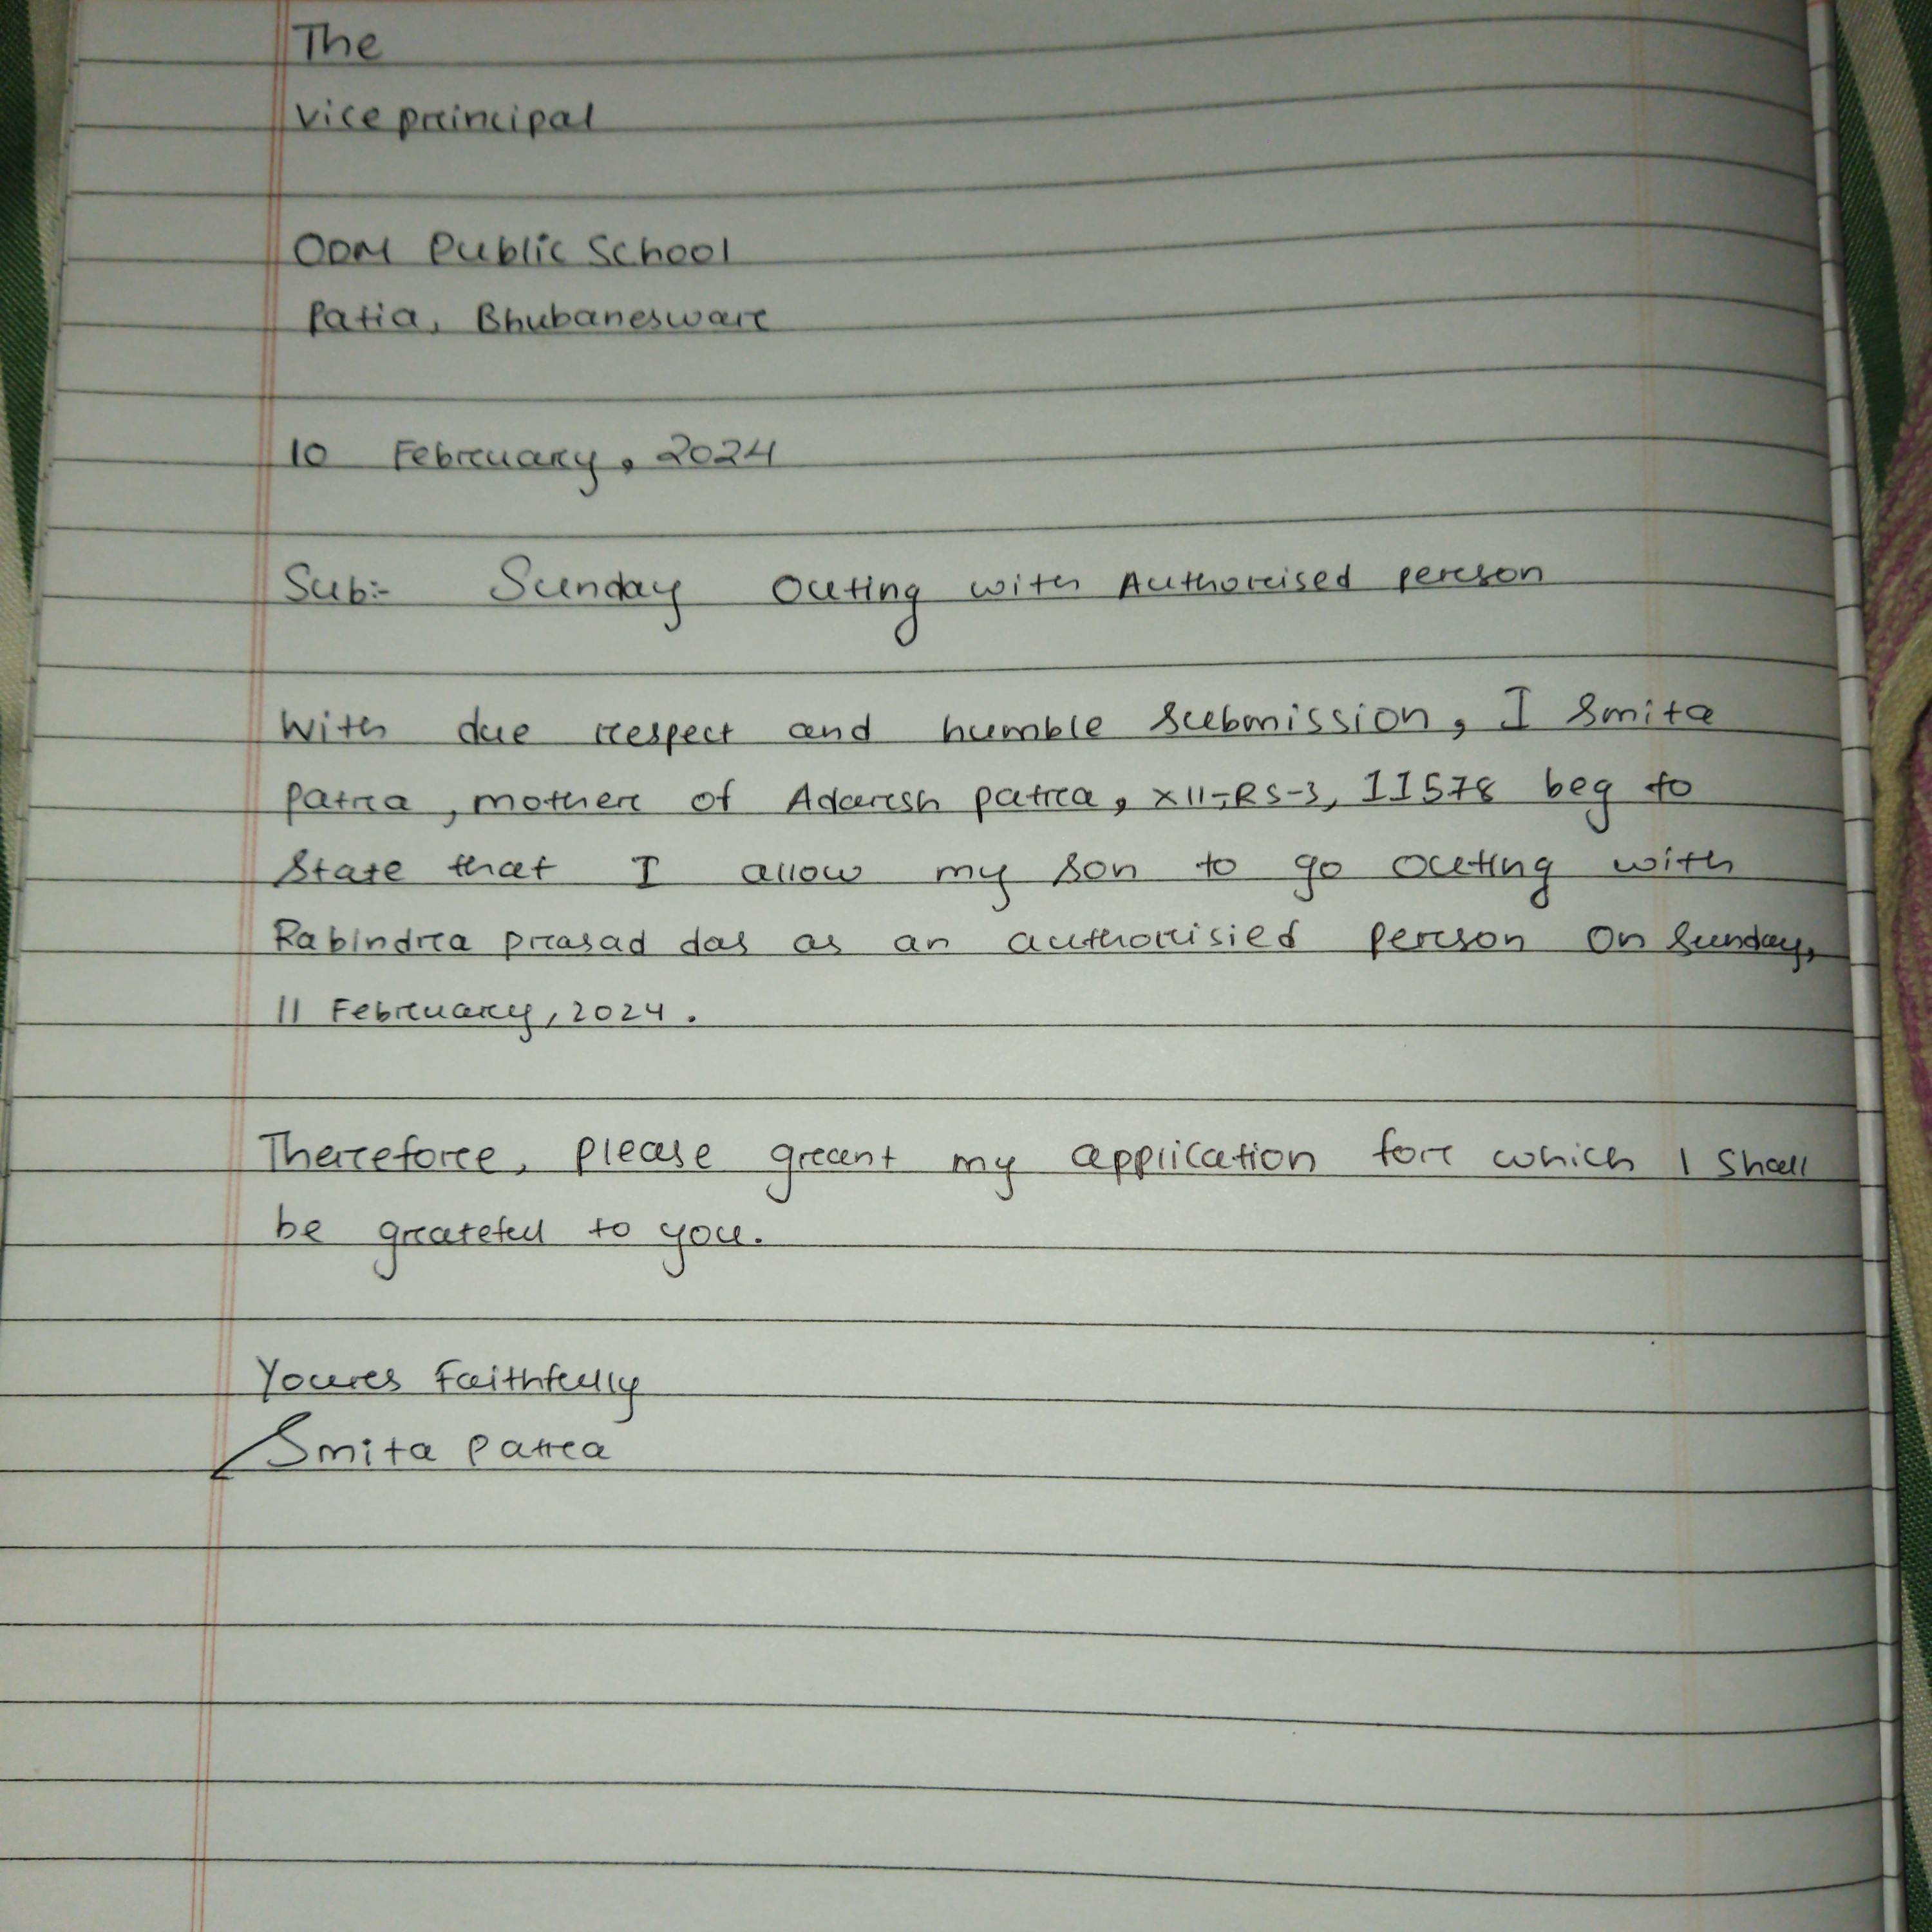 The
Vice principal
ODM Public School
Patia, Bhubaneswar
10 February, 2024
Sub:- Sunday Outing with Authorised person
With due respect and humble submission, I Smita
patra, mother of Adarsh patra, XII-RS-3, 11578 beg to
State that I allow my son to go outing with
Rabindra prasad das as an authorisied person on Sunday,
11 February, 2024.
Therefore, please grant my application for which I shall
be grateful to you.
Yours Faithfully
Smita Patra